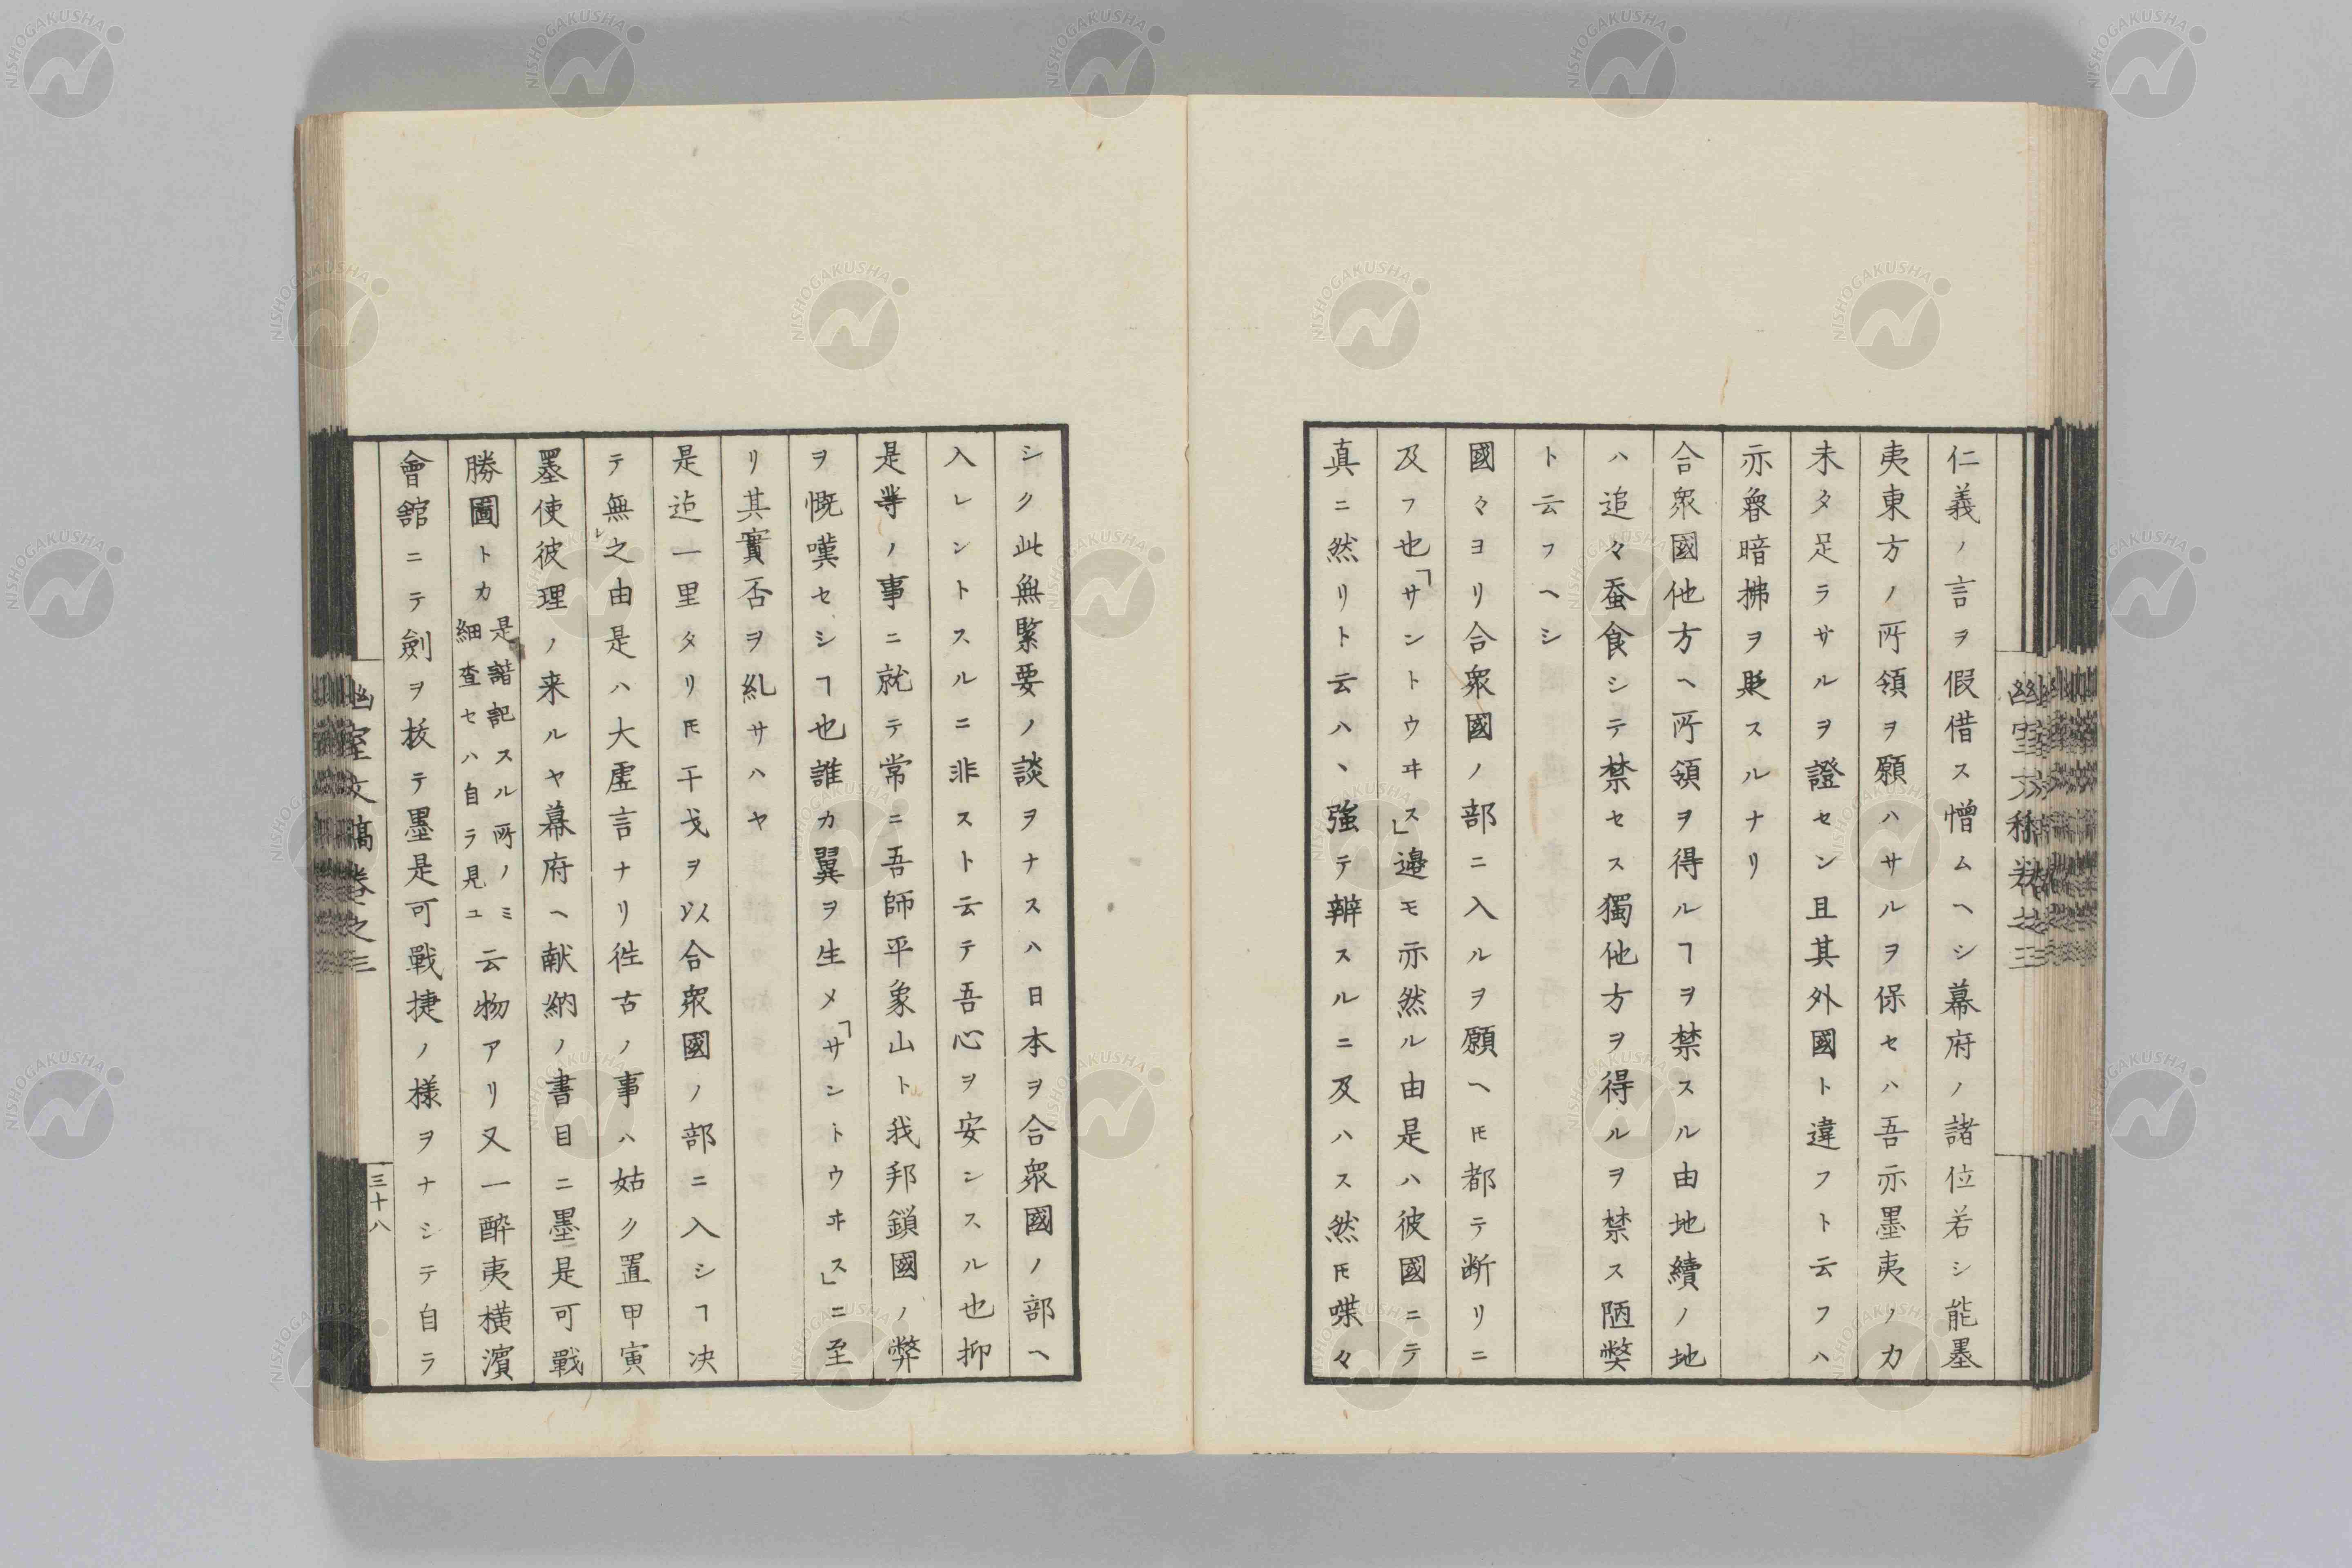 仁義ノ言ヲ假借ス憎ムヘシ幕府ノ諸位若シ能墨
夷東方ノ所領ヲ願ハサルヲ保セハ吾亦墨夷ノ力
未タ足ラサルヲ證セン且其外國ト違フト云フハ
亦魯暗拂ヲ貶スルナリ
合衆國他方ヘ所領ヲ得ルヿヲ禁スル由地續ノ地
ハ追々蚕食シテ禁セス獨他方ヲ得ルヲ禁ス陋弊
ト云フヘシ
國々ヨリ合衆國ノ部ニ入ルヲ願ヘ𪜈都テ断リニ
及フ也「サントウヰス」邉モ亦然ル由是ハ彼國ニテ
真ニ然リト云ハヽ強テ辨スルニ及ハス然𪜈喋々
シク此無緊要ノ談ヲナスハ日本ヲ合衆國ノ部ヘ
入レントスルニ非ストテ云テ吾心ヲ安ンスル也抑
是等ノ事ニ就テ常ニ吾師平象山ト我邦鎖國ノ弊
ヲ慨嘆セシヿ也誰カ翼ヲ生メ「サントウヰス」ニ至
リ其實否ヲ糺サハヤ
是迠一里タリ𪜈干戈ヲ以合衆國ノ部ニ入シヿ决
テ無レ之由是ハ大虚言ナリ徃古ノ事ハ姑ク置甲寅
墨使彼理ノ来ルヤ幕府ヘ献納ノ書目ニ墨是可戰
勝圖トカ是諳記スル所ノミ細査セハ自ラ見ユ云物アリ又一酔夷横濵
會舘ニテ劍ヲ拔テ墨是可戰捷ノ様ヲナシテ自ラ
幽室文稿卷之三
三十八
NISHOGAKUSHA